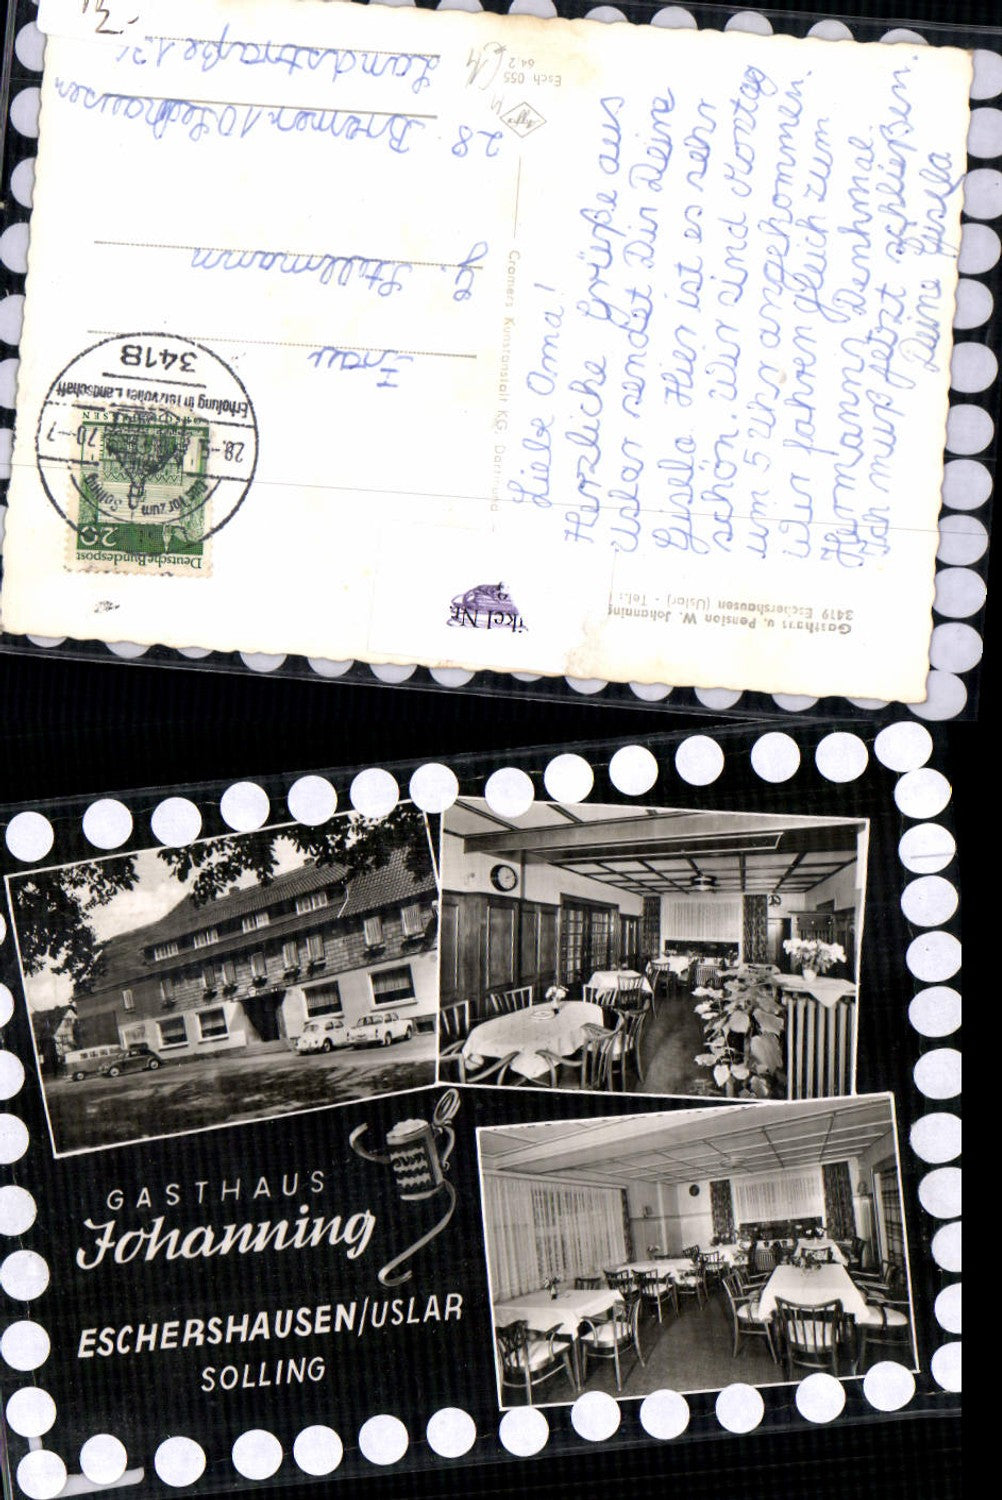 Esch 055
64.2
Agfa
Cramers Kunstanstalt KG, Dortmund
Liebe Oma!
Herzliche Grüße aus
Uslar sendet Dir Deine
Gisela. Hier ist es sehr
schön. Wir sind Montag
um 5 Uhr angekommen.
Wir fahren gleich zum
Hermanns Denkmal.
Ich muß jetzt schließen.
Deine Gisela
Frau
G. Stellmann
28 Bremen 10
Landstraße
Deutsche Bundespost
20
3418
Erholung in reizvoller Landschaft
Das Tor zum Solling
Gasthaus u. Pension W. Johanning
3419 Eschershausen (Uslar) - Tel.:
ikel Nr.
GASTHAUS
Johanning
ESCHERSHAUSEN/USLAR
SOLLING